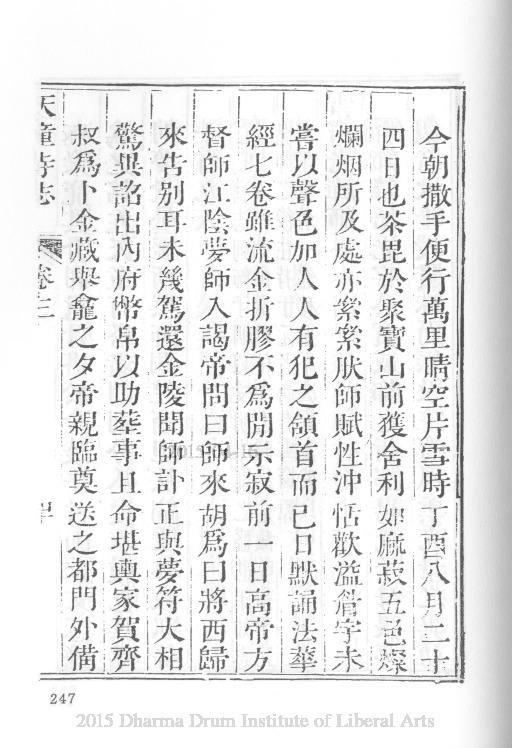 今朝撒手便行萬里晴空片雪時丁酉八月二十
四日也茶毘於聚寶山前獲舍利如麻菽五色燦
爛烟所及處亦纍纍肰師賦性沖恬歡溢眉宇未
嘗以聲色加人人有犯之頷首而已日默誦法華
經七卷雖流金折膠不爲閒示寂前一日高帝方
督師江陰夢師入謁帝問曰師來胡爲曰將西歸
來告别耳未幾駕還金陵聞師訃正與夢符大相
驚異詔出內府幣帛以助塟事且命堪輿家賀齊
叔爲卜金藏舉龕之夕帝親臨奠送之都門外備
天童寺志
卷三
247
2015 Dharma Drum Institute of Liberal Arts